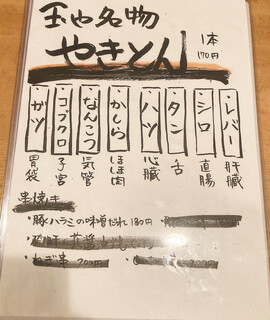 玉や名物
やきとん
1本
170円
・レバー 肝臓
・シロ 直腸
・タン 舌
・ハツ 心臓
・かしら ほほ肉
・なんこつ 気管
・コブクロ 子宮
・ガツ 胃袋
串焼き
・豚ハラミの味噌だれ 180円
・ねぎ串 200円